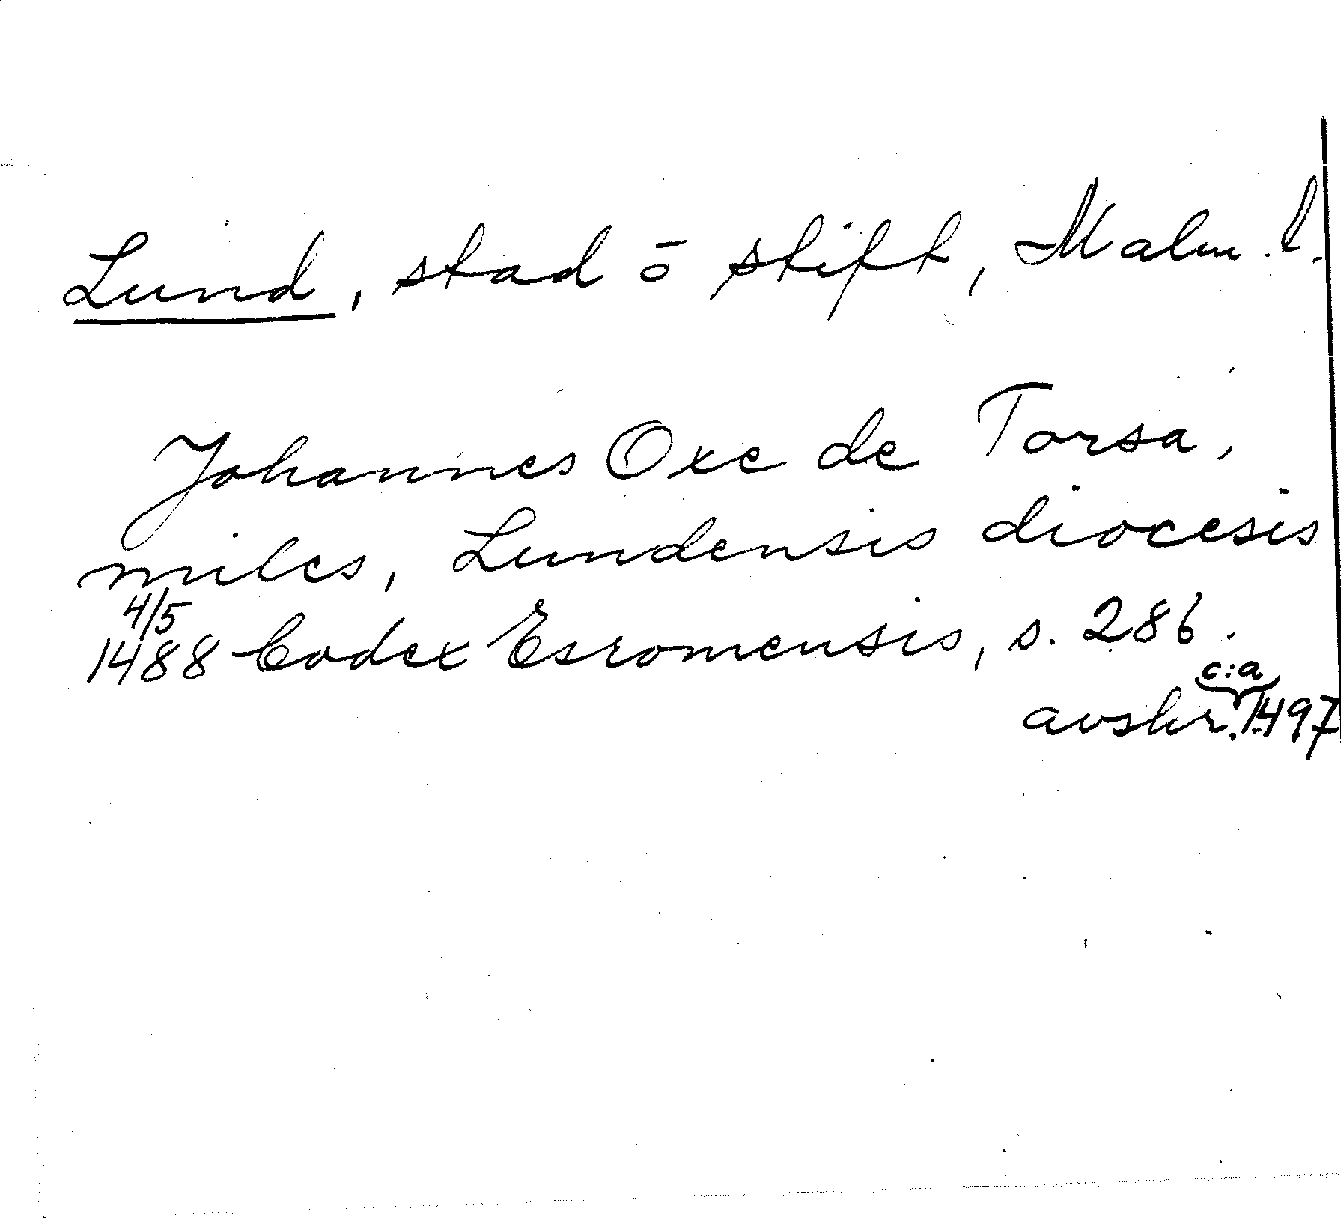 Lund, stad ō stift, Malm. l.
Johannes Oxe de Torsa,
miles, Lundensis diocesis
4/5
1488 Codex Esromensis, s. 286.
c:a
avskr. 1497